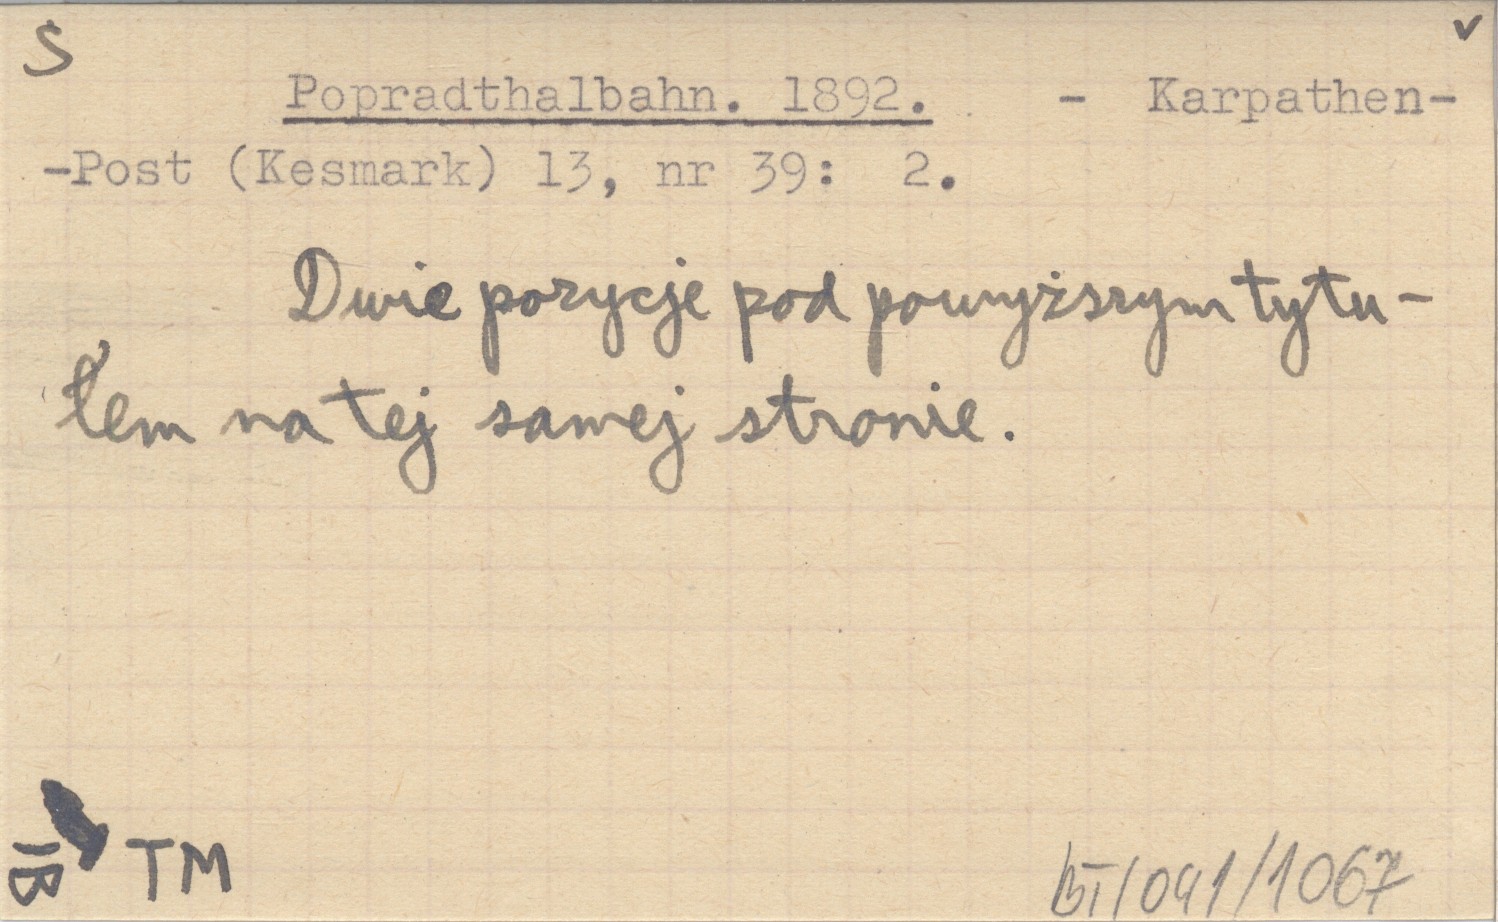 S v
Popradthalbahn. 1892. - Karpathen-
-Post (Kesmark) 13, nr 39: 2.
Dwie pozycje pod powyższym tytu-
łem na tej samej stronie.
IB TM BT/091/1067